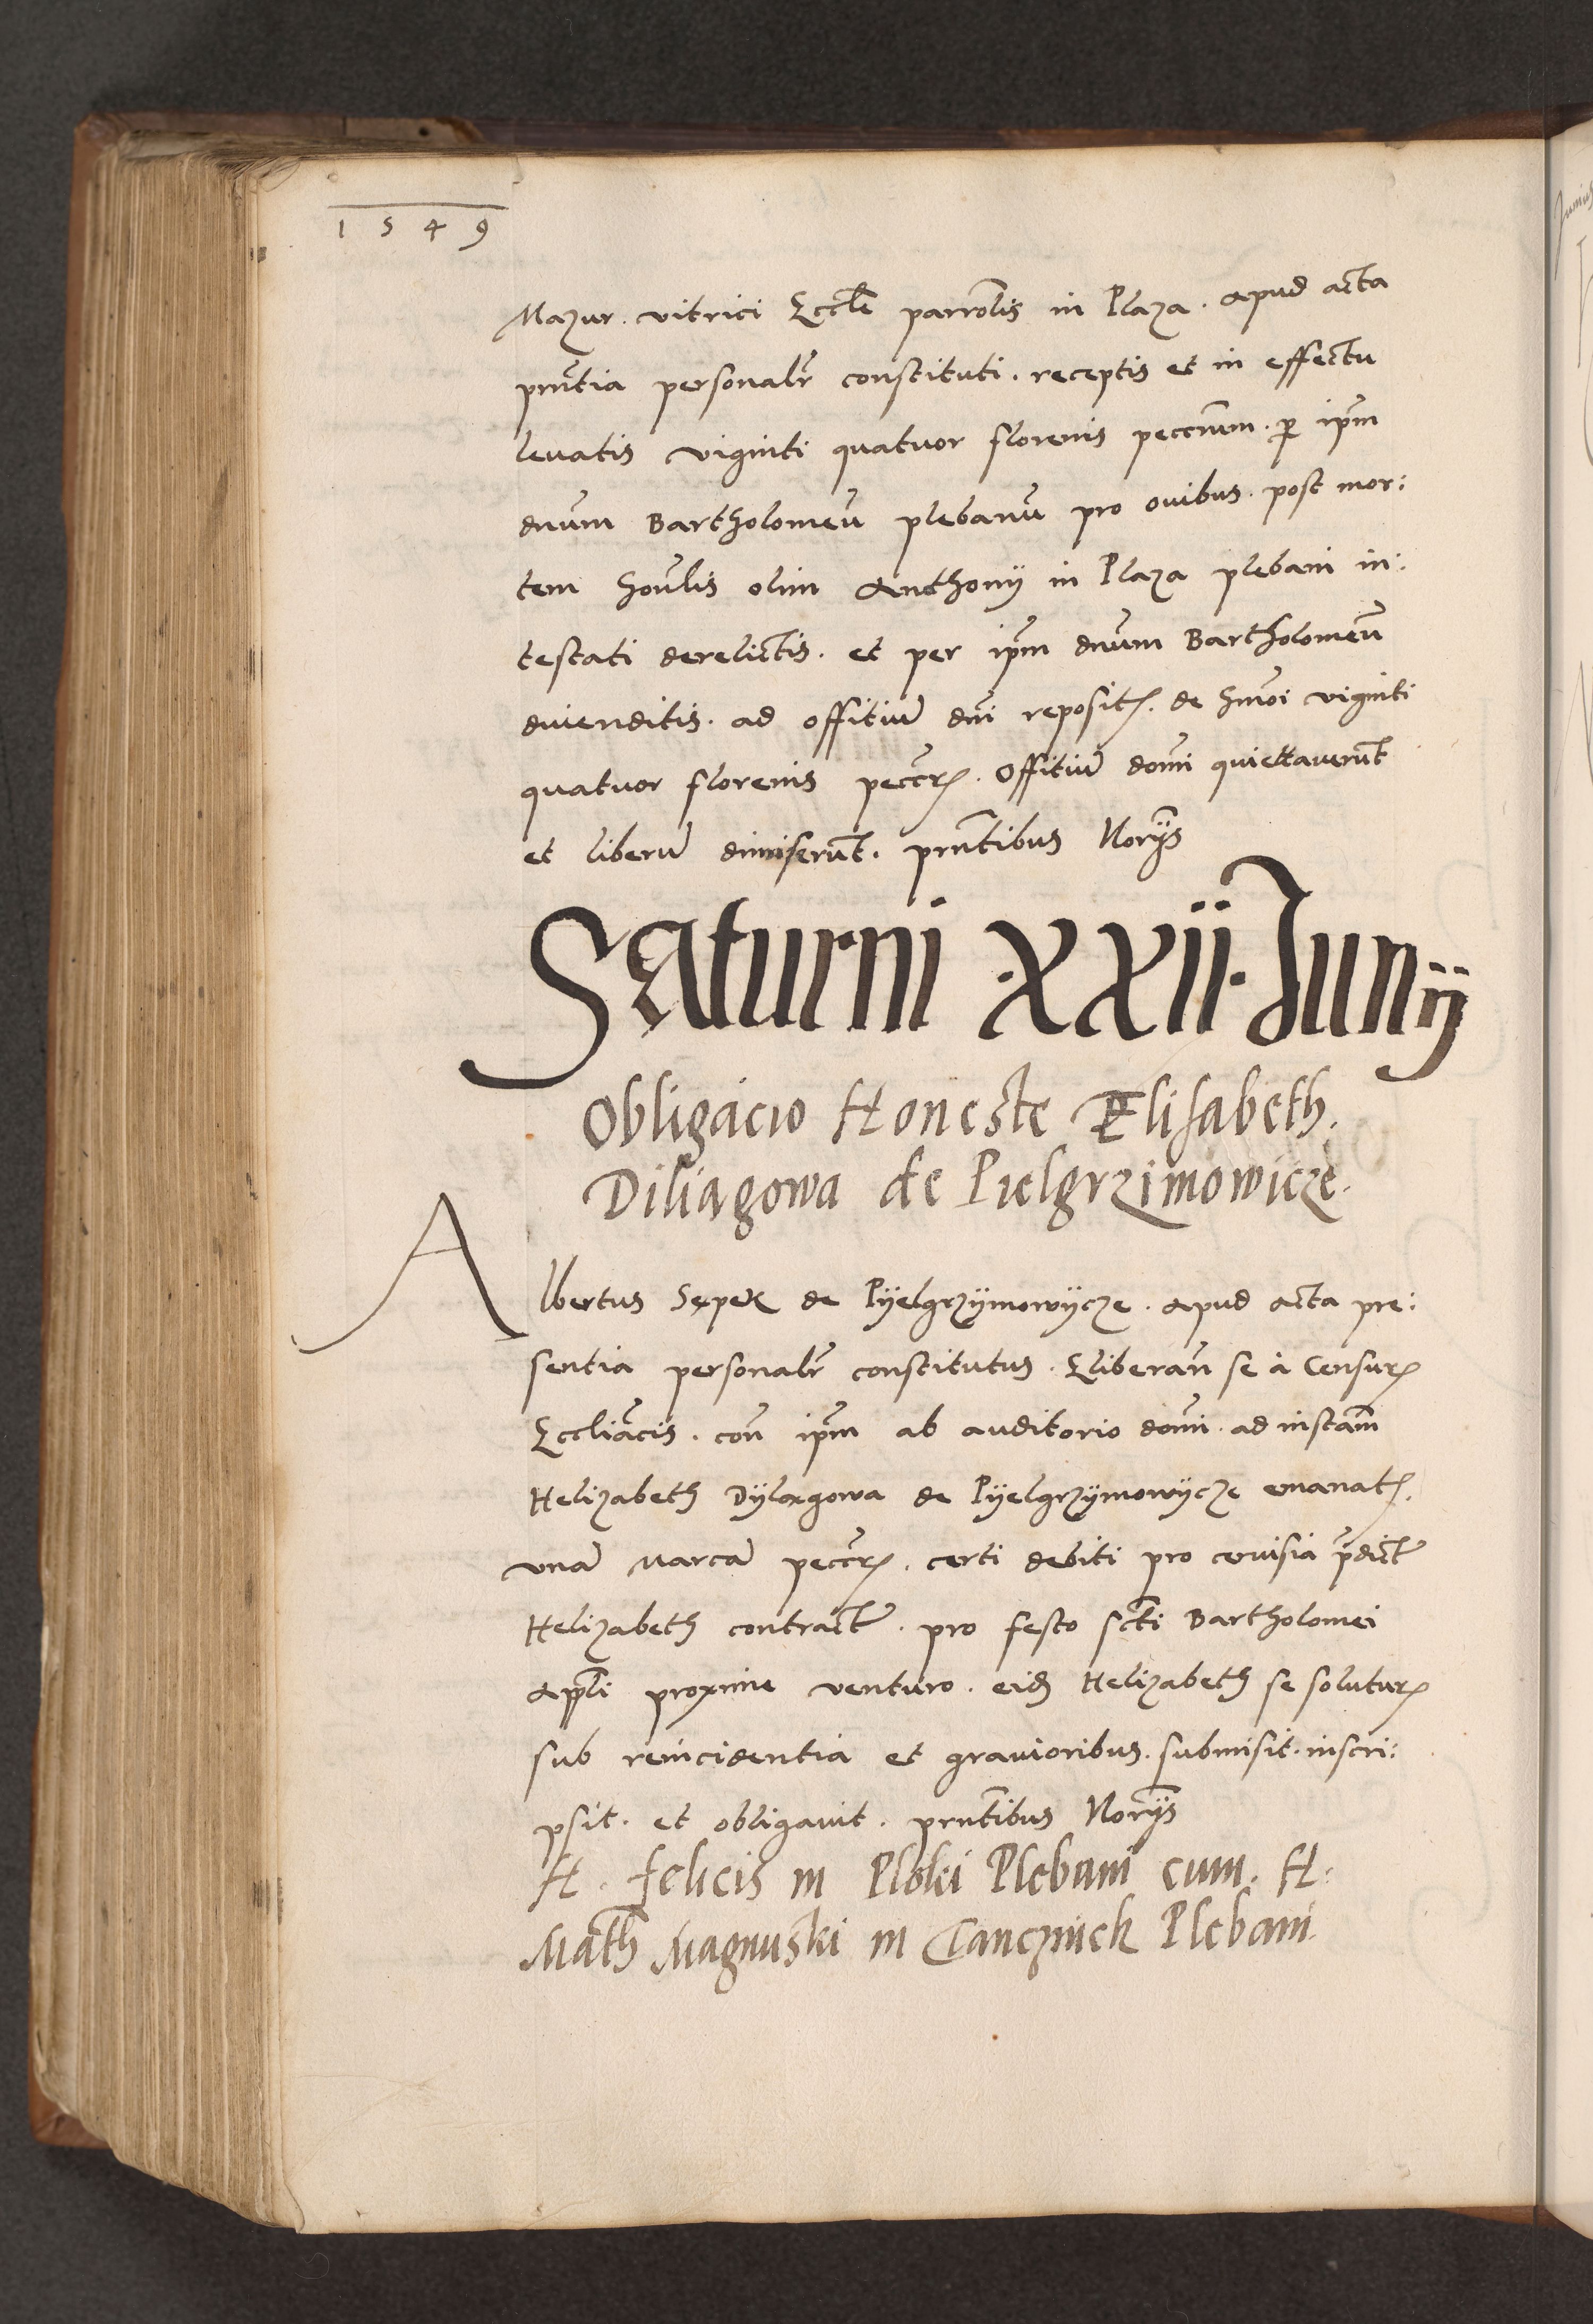 1549
Mazur. vitrici Eccle parrolis in Plaza. apud acta
prntia personalr constituti. receptis et in effectu
levatis viginti quatuor florenis peccnum. p ipm
dnum Bartholomeu plebanu pro ovibus. post mor:
tem honlis olim Anthonij in Plaza plebani in:
testati derelictis. et per ipm dnum Bartholomeu
divenditis. ad offitiu dni reposit. de hmoi viginti
quatuor florenis peccr. Offitiu domi quiettaverunt
et liberu dimiserunt. prntibus Norijs
Saturni .XXII. Junij
Obligacio Honeste Elisabeth.
Diliagowa de Pielgrzimowicze.
Albertus Sępek de Pÿelgrzÿmowÿcze. apud acta pre:
sentia personalr constitutus. Eliberan se à Censur
Eccliacis. con ipm ab auditorio domi. ad instam
Helizabeth Dÿlągowa de Pÿelgrzÿmowÿcze emanat.
vna marca peccr. certi debiti pro cervisia pdict
Helizabeth contract. pro festo scti Bartholomei
Apli proxime venturo. eid Helizabeth se solutur
sub reincidentia et gravioribus. submisit. inscri:
psit. et obligavit. prntibus Norijs
H. felicis in Ploki Plebani cum. H.
Math Magnuski in Tanczinek Plebani.